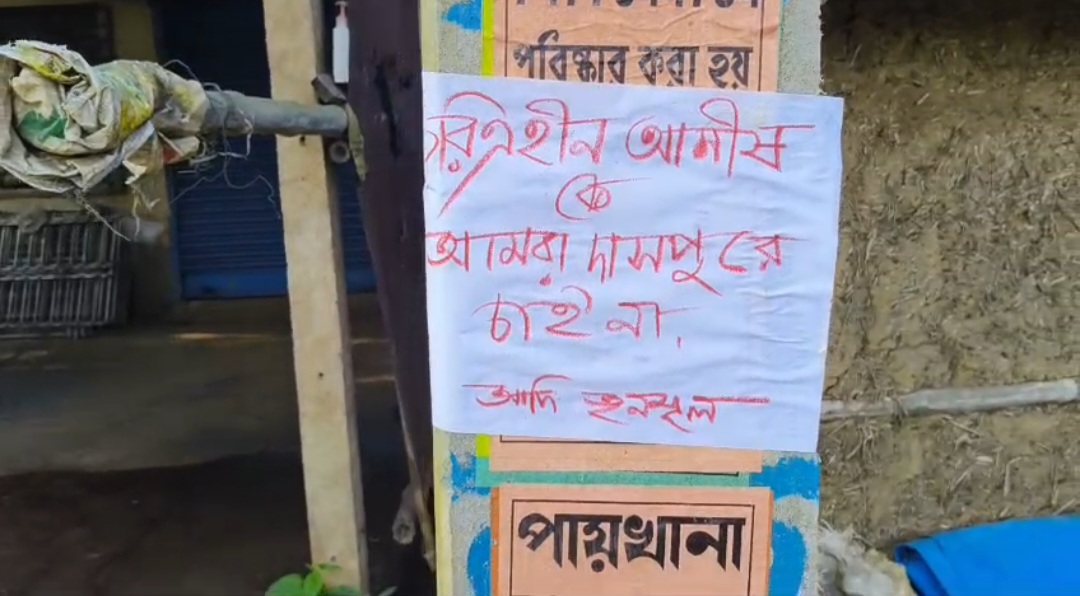 পরিষ্কার করা হয়
চরিত্রহীন আশীষ
কে
আমরা দাসপুরে
চাই না.
আদি তৃনমূল
পায়খানা